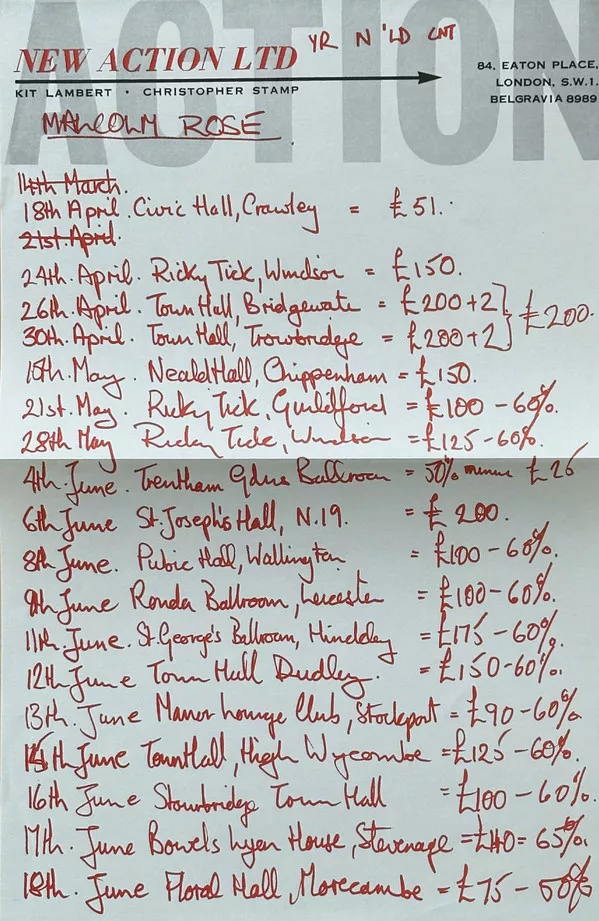 ACTION
YR N'LD CNT
NEW ACTION LTD
KIT LAMBERT • CHRISTOPHER STAMP
84, EATON PLACE,
LONDON, S.W.1.
BELGRAVIA 8989
MALCOLM ROSE
14th March.
18th April. Civic Hall, Crawley = £51.
21st. April.
24th. April. Ricky Tick, Windsor = £150.
26th. April. Town Hall, Bridgewate = £200+2
30th April. Town Hall, Trowbridge = £200+2 } £200.
15th. May. Neald Hall, Chippenham = £150.
21st. May. Ricky Tick, Guildford = £100 - 60%.
28th May Ricky Tick, Windsor = £125 - 60%.
4th. June. Trentham Gdns Ballroom = 50% minus £26
6th June St. Joseph's Hall, N.19. = £ 200.
8th June. Pubic Hall, Wallington = £100 - 60%.
9th June Ronda Ballroom, Leicester = £100 - 60%.
11th. June. St. George's Ballroom, Hinckley = £175 - 60%.
12th June Town Hall Dudley. = £150-60%.
13th. June Manor Lounge Club, Stockport = £90 - 60%
15th June Town Hall, High Wycombe = £125 - 60%.
16th June Stourbridge Town Hall = £100 - 60%.
17th. June Bowels Lyon House, Stevenage = £140 = 65%.
18th. June Floral Hall, Morecambe = £75 - 50%